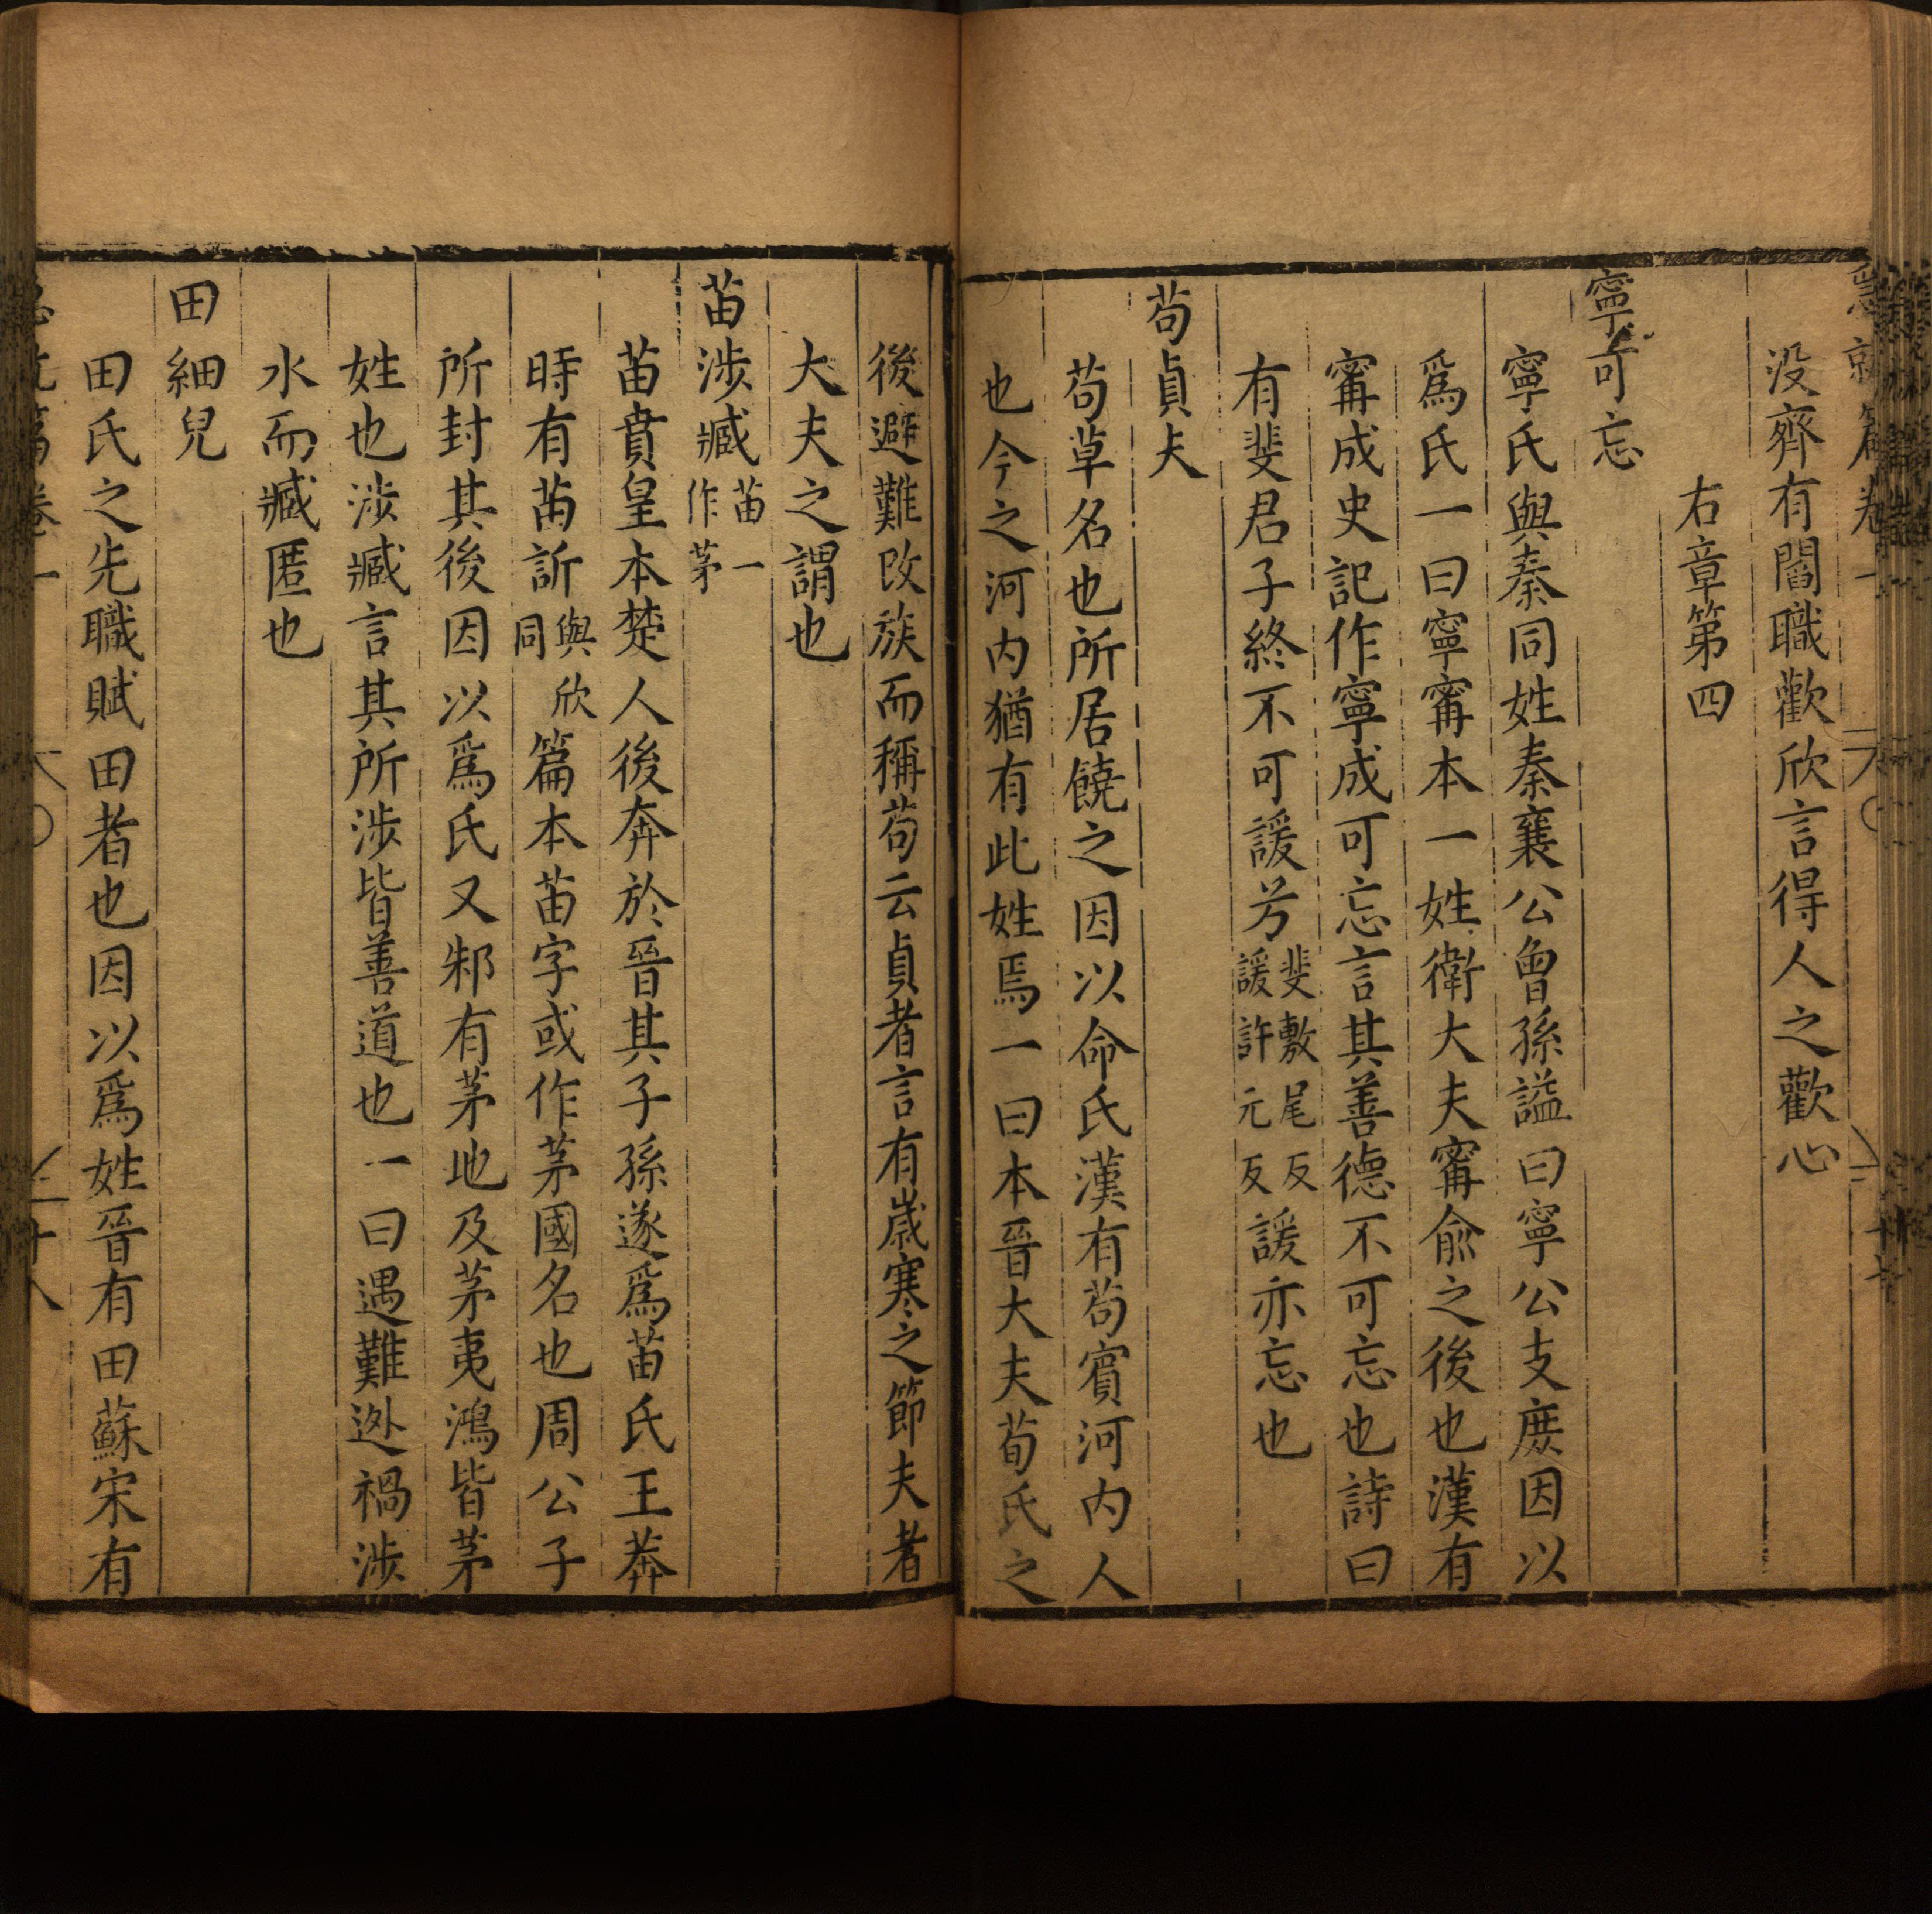 急就篇卷一 十七
没齊有閻職歡欣言得人之歡心
右章第四
寧可忘
寧氏與秦同姓秦襄公曾孫謚曰寧公支庶因以
爲氏一曰寧甯本一姓衛大夫甯俞之後也漢有
甯成史記作寧成可忘言其善德不可忘也詩曰
有斐君子終不可諼兮斐敷尾反諼許元反諼亦忘也
苟貞夫
苟草名也所居饒之因以命氏漢有苟賓河内人
也今之河内猶有此姓焉一曰本晉大夫荀氏之
後避難改族而稱苟云貞者言有歲寒之節夫者
大夫之謂也
苗涉臧苗一作茅
苗賁皇本楚人後奔於晉其子孫遂爲苗氏王莽
時有苗訢與欣同篇本苗字或作茅國名也周公子
所封其後因以爲氏又邾有茅地及茅夷鴻皆茅
姓也涉臧言其所涉皆善道也一曰遇難迯禍涉
水而臧匿也
田細兒
田氏之先職賦田者也因以爲姓晉有田蘇宋有
卷一 十八